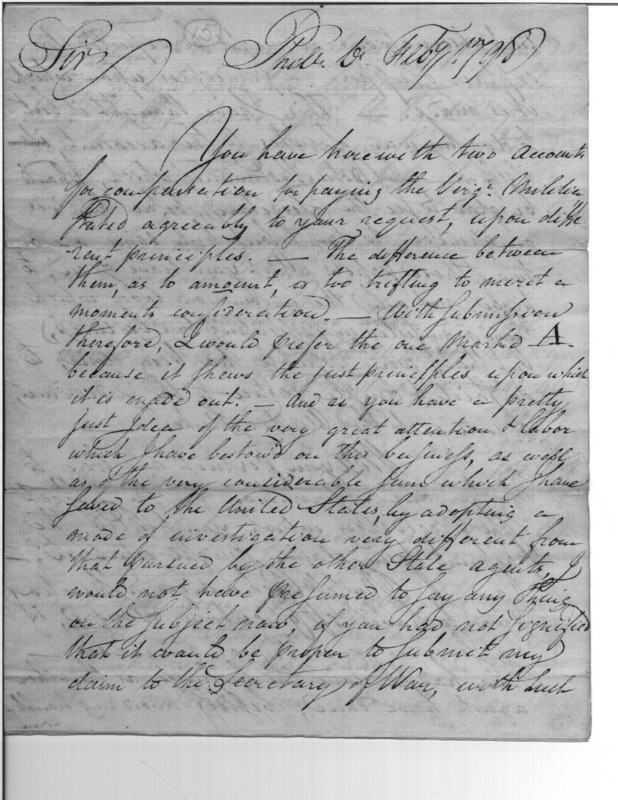 (15)
Sir Phila. Feby 1798
You have herewith two accounts
for compensation for paying the Virga. Militia
Stated agreeably to your request, upon diffe
-rent principles. — The difference between
them, as to amount, is too trifling to merit a
moments consideration. — With submission
therefore, I would prefer the one marked A.
because it shews the just principles upon which
it is made out. — And as you have a pretty
just Idea of the very great attention & labor
which I have bestow'd on this business, as well
as of the very considerable sum which I have
saved to the United States, by adopting a
mode of investigation very different from
that pursued by the other State agents, I
would not have presumed to say any Thing
on the subject now if you had not signified
that it would be proper to submit my
claim to the Secretary of War, with such